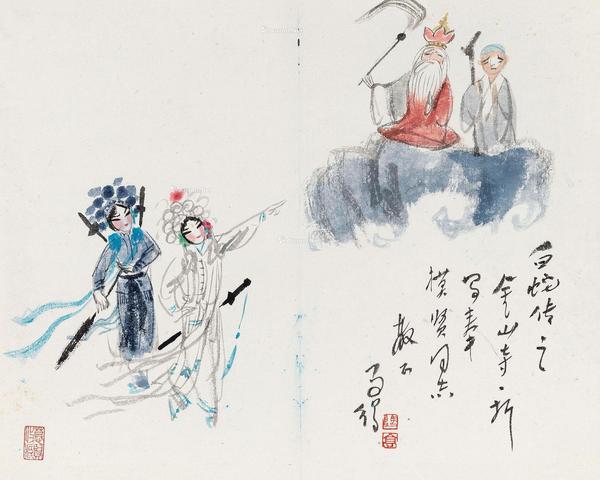 白蛇传之
金山寺一折
写奉
模贤同志
教正
马得